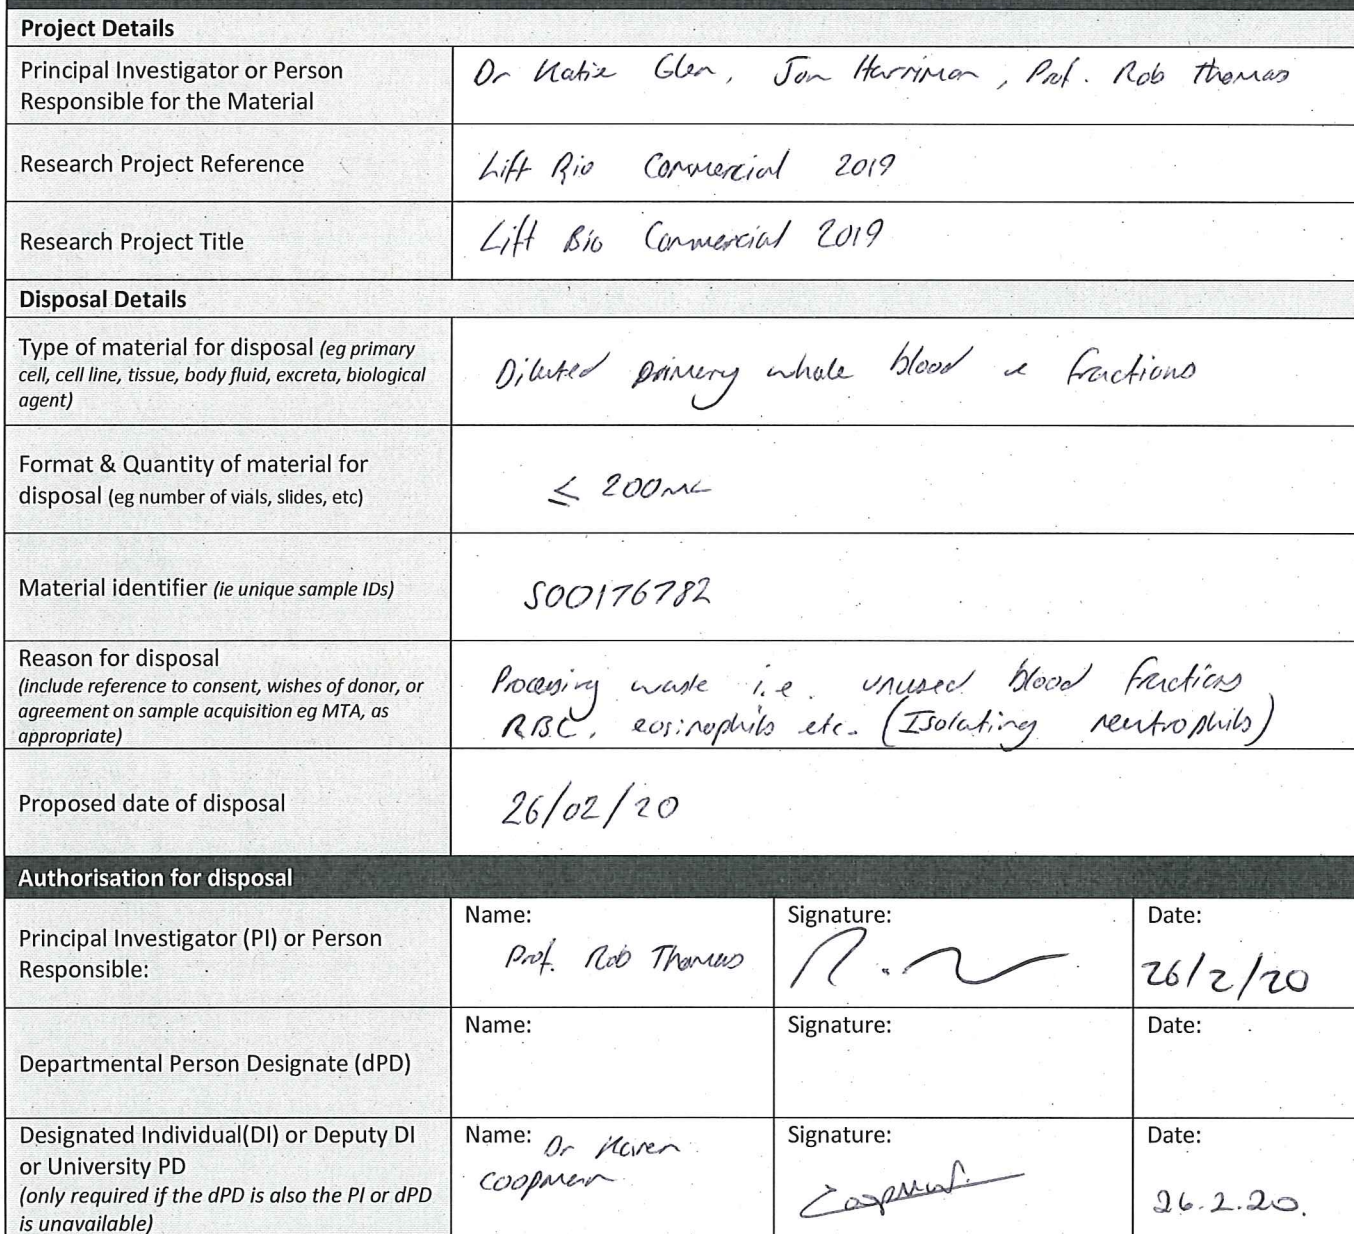 Project Details
Principal Investigator or Person
Responsible for the Material
Dr Katie Glen, Jon Harriman, Prof. Rob Thomas
Research Project Reference
Lift Bio Commercial 2019
Research Project Title
Lift Bio Commercial 2019
Disposal Details
Type of material for disposal (eg primary
cell, cell line, tissue, body fluid, excreta, biological
agent)
Diluted primary whole blood & fractions
Format & Quantity of material for
disposal (eg number of vials, slides, etc)
≤ 200mL
Material identifier (ie unique sample IDs)
S00176782
Reason for disposal
(include reference to consent, wishes of donor, or
agreement on sample acquisition eg MTA, as
appropriate)
Processing waste i.e. unused blood fractions
RBC, eosinophils etc. (Isolating neutrophils)
Proposed date of disposal
26/02/20
Authorisation for disposal
Principal Investigator (PI) or Person
Responsible:
Name:
Prof. Rob Thomas
Signature:
Date:
26/2/20
Departmental Person Designate (dPD)
Name:
Signature:
Date:
Designated Individual(DI) or Deputy DI
or University PD
(only required if the dPD is also the PI or dPD
is unavailable)
Name: Dr Karen
Coopman
Signature:
Coopman
Date:
26.2.20.